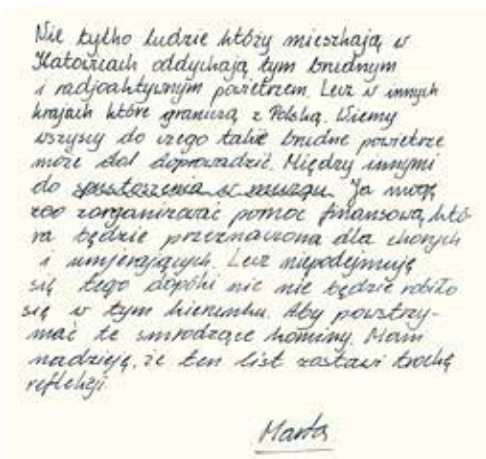 Nie tylko ludzie którzy mieszkają w
Katowicach oddychają tym brudnym
i radjoaktywnym powietrzem. Lecz w innych
krajach które graniczą z Polską. Wiemy
wszyscy do czego takie brudne powietrze
może doprowadzić. Między innymi
do spustoszenia w muzgu. Ja mogę
zorganizować pomoc finansową któ-
ra będzie przeznaczona dla chorych
i umjerających. Lecz niepodejmuję
się tego dopóki nic nie będzie robiło
się w tym kierunku. Aby powstrzy-
mać te smrodzące kominy. Mam
nadzieję, że ten list zostawi trochę
refleksji.
Marta